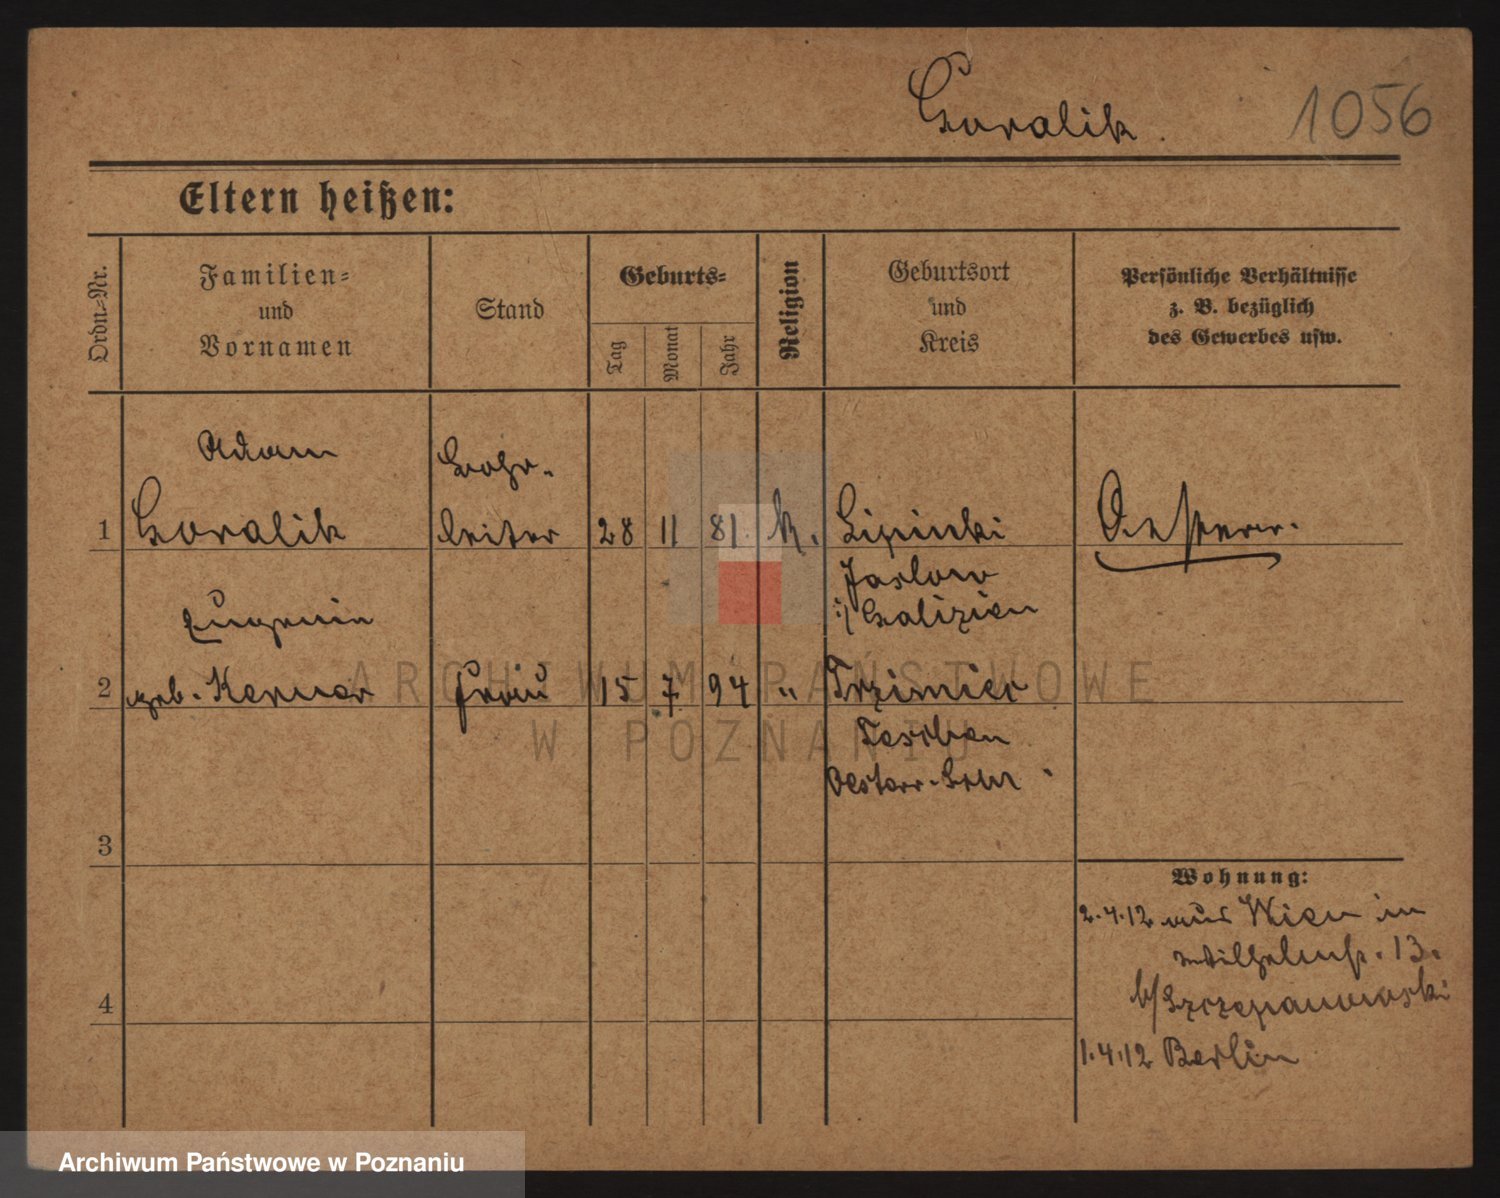 Goralik.
1056
Eltern heißen:
Ordn.=Nr.
Familien=
und
Vornamen
Stand
Geburts=
Tag
Monat
Jahr
Religion
Geburtsort
und
Kreis
Persönliche Verhältnisse
z. B. bezüglich
des Gewerbes usw.
Adam
1 Goralik
leiter 28 11 81. k. Lipinki
Oesterr.
Jaslow
i/ Galizien
Eugenie
2 geb. Kerner Frau 15 7 94 " Trzimierz
Teschen
Oesterr.
3
4
Wohnung:
2.4.12 aus Wien in
Wilhelmstr. 13.
b/ Szczepanowski
1.4.12 Berlin
ARCHIWUM PAŃSTWOWE
W POZNANIU
Archiwum Państwowe w Poznaniu